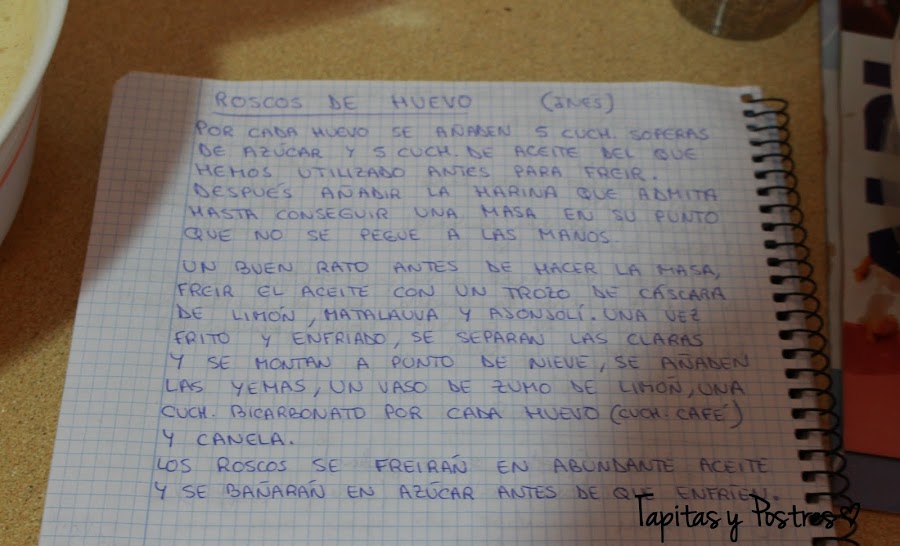 ROSCOS DE HUEVO (INÉS)
POR CADA HUEVO SE AÑADEN 5 CUCH. SOPERAS
DE AZÚCAR Y 5 CUCH. DE ACEITE DEL QUE
HEMOS UTILIZADO ANTES PARA FREIR.
DESPUÉS AÑADIR LA HARINA QUE ADMITA
HASTA CONSEGUIR UNA MASA EN SU PUNTO
QUE NO SE PEGUE A LAS MANOS.
UN BUEN RATO ANTES DE HACER LA MASA,
FREIR EL ACEITE CON UN TROZO DE CÁSCARA
DE LIMÓN, MATALAUVA Y AJONJOLÍ. UNA VEZ
FRITO Y ENFRIADO, SE SEPARAN LAS CLARAS
Y SE MONTAN A PUNTO DE NIEVE, SE AÑADEN
LAS YEMAS, UN VASO DE ZUMO DE LIMÓN, UNA
CUCH. BICARBONATO POR CADA HUEVO (CUCH. CAFÉ)
Y CANELA.
LOS ROSCOS SE FREIRÁN EN ABUNDANTE ACEITE
Y SE BAÑARÁN EN AZÚCAR ANTES DE QUE ENFRÍEN.
Tapitas y Postres